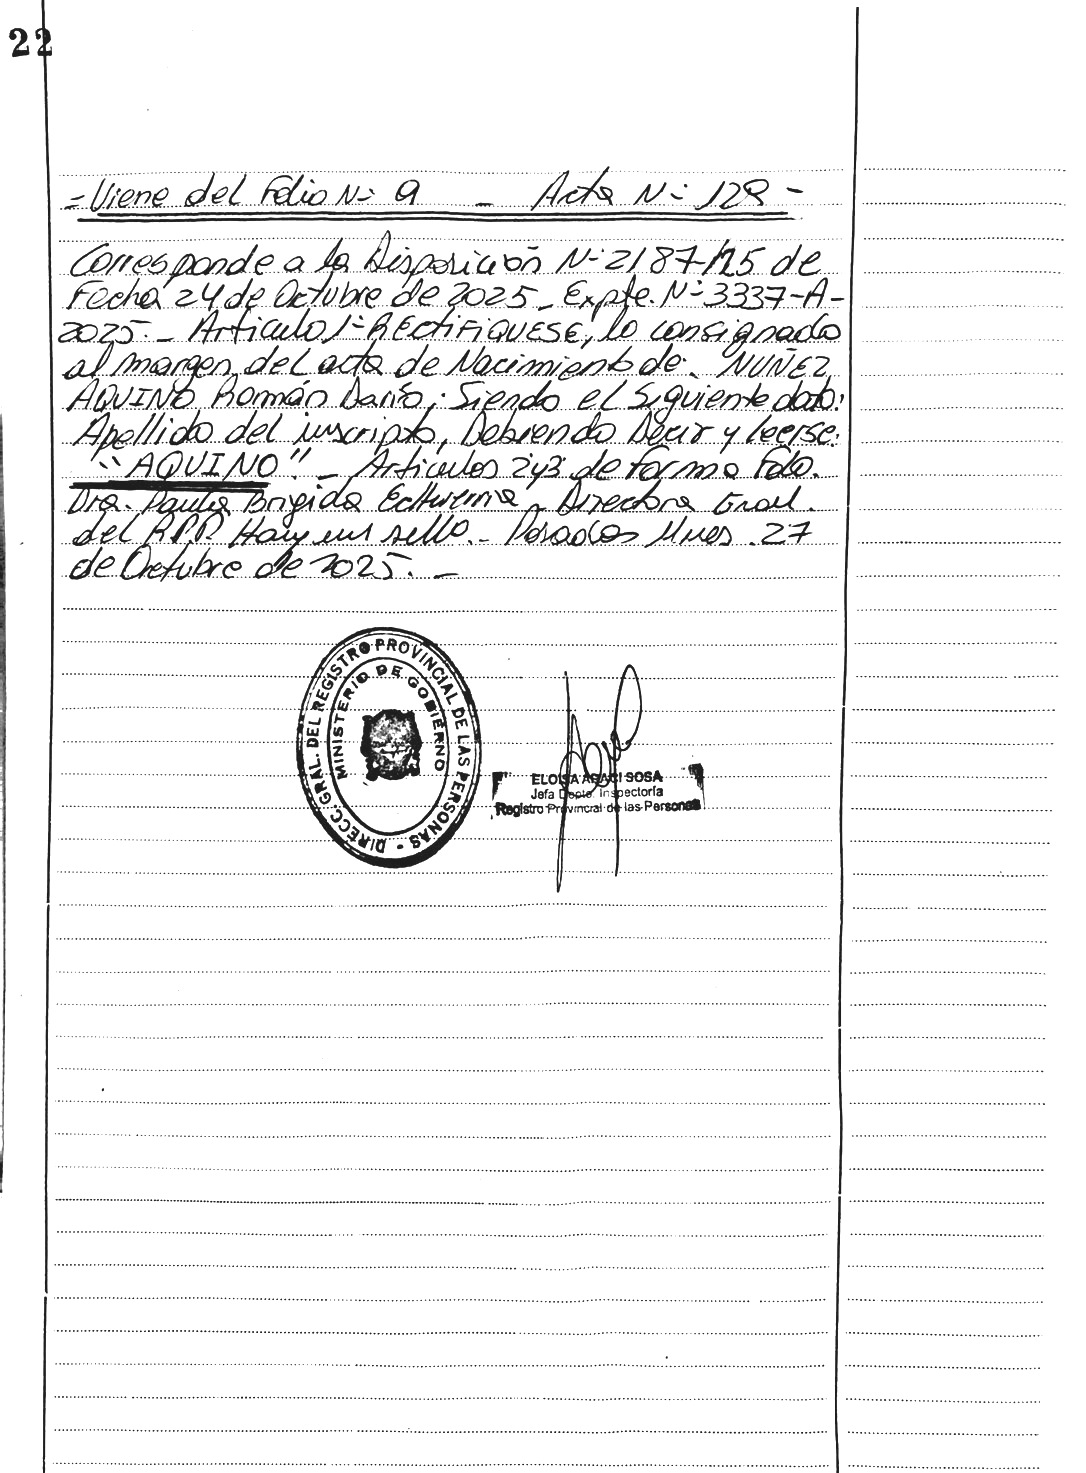 22
- Viene del Folio N- 9 - Acta N- 128 -
Corresponde a la Disposición N- 2187/25 de
Fecha 24 de Octubre de 2025 - Expte. N- 3337-A-
2025. - Articulo 1- RECTIFIQUESE, lo consignado
al margen del acta de Nacimiento de: NUÑEZ
AQUINO Román Darío; Siendo el Siguiente dato:
Apellido del inscripto, Debiendo Decir y leerse:
"AQUINO" - Articulos 2y3 de forma Fdo.
Dra. Paula Brigida - Directora Gral.
del R.P.P. Hay un sello. - Posadas Mnes. 27
de Octubre de 2025. -
DIRECC. GRAL. DEL REGISTRO PROVINCIAL DE LAS PERSONAS -
MINISTERIO DE GOBIERNO
ELOISA ARACI SOSA
Jefa Depto. Inspectoría
Registro Provincial de las Personas